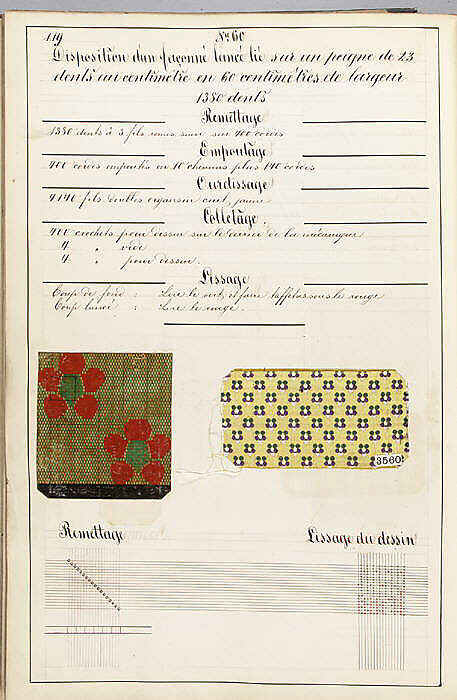 119
No. 60
Disposition d'un façonné lancé lié sur un peigne de 23
dents au centimètre en 60 centimètres de largeur
1380 dents
Remettage
1380 dents à 3 fils sur 400 cordes
Empoutage
400 cordes empoutés en 10 chemins plus 140 cordes
Ourdissage
4140 fils doubles organsin cuit, jaune
Colletage.
400 crochets pour dessin sur le derrière de la mécanique
4 " vide
4 " pour dessin.
Lissage
Coup de fond : Lire le vert, et faire taffetas sous le rouge
Coup lancé : Lire le rouge.
3560
Remettage
Lissage du dessin